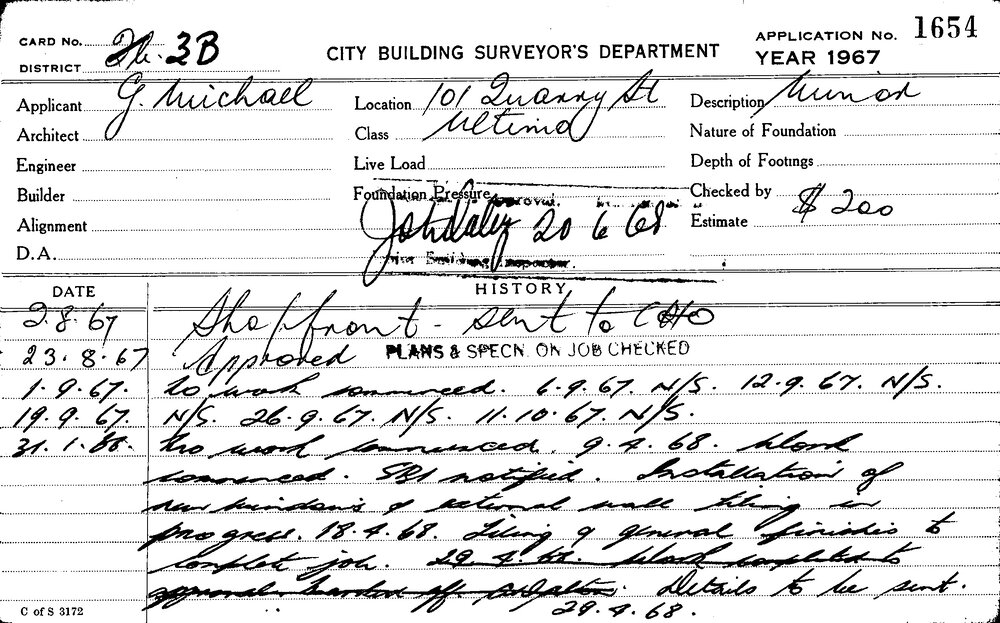 CARD No. 3B
CITY BUILDING SURVEYOR'S DEPARTMENT
APPLICATION No. 1654
DISTRICT
YEAR 1967
Applicant G. Michael
Location 101 Quarry St
Description Minor
Architect
Class Ultimo
Nature of Foundation
Engineer
Live Load
Depth of Footings
Builder
Foundation Pressure
Checked by
Alignment
20 6 68
Estimate $ 200
D.A.
DATE
HISTORY
2.8.67 Shopfront - sent to
23.8.67 Approved PLANS & SPECN. ON JOB CHECKED
1.9.67. No work commenced. 6.9.67. N/S. 12.9.67. N/S.
19.9.67. N/S. 26.9.67. N/S. 11.10.67. N/S.
31.1.68. No work commenced. 9.4.68. Work
commenced. SBI notified. Installation of
new windows & external wall tiling in
progress. 18.4.68. Tiling & general finishes to
complete job. 29.4.68. Work completed to
approval Details to be sent.
29.4.68.
C of S 3172